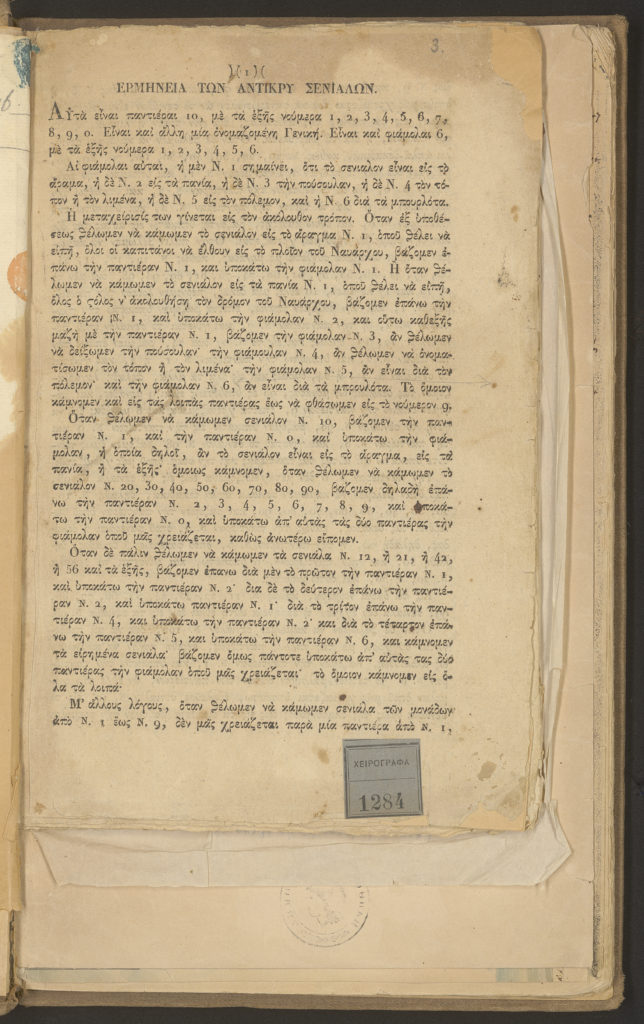 3.
)( 1 )(
ΕΡΜΗΝΕΙΑ ΤΩΝ ΑΝΤΙΚΡΥ ΣΕΝΙΑΛΩΝ.
Αὐτὰ εἶναι παντιέραι 10, μὲ τὰ ἑξῆς νούμερα 1, 2, 3, 4, 5, 6, 7,
8, 9, 0. Εἶναι καὶ ἄλλη μία ὀνομαζομένη Γενική. Εἶναι καὶ φιάμολαι 6,
μὲ τὰ ἑξῆς νούμερα 1, 2, 3, 4, 5, 6.
Αἱ φιάμολαι αὐταὶ, ἡ μὲν Ν. 1 σημαίνει, ὅτι τὸ σενιαλον εἶναι εἰς τὸ
ἄραμα, ἡ δὲ Ν. 2 εἰς τὰ πανία, ἡ δὲ Ν. 3 τὴν πούσουλαν, ἡ δὲ Ν. 4 τὸν τό-
πον ἢ τὸν λιμένα, ἡ δὲ Ν. 5 εἰς τὸν πόλεμον, καὶ ἡ Ν. 6 διὰ τὰ μπουρλότα.
Ἡ μεταχείρισίς των γίνεται εἰς τὸν ἀκόλουθον τρόπον. Ὅταν ἐξ ὑποθέ-
σεως θέλωμεν νὰ κάμωμεν τὸ σενιαλον εἰς τὸ ἄραγμα Ν. 1, ὁποῦ θέλει νὰ
εἰπῇ, ὅλοι οἱ καπιτάνοι νὰ ἔλθουν εἰς τὸ πλοῖον τοῦ Ναυάρχου, βάζομεν ἐ-
πάνω τὴν παντιέραν Ν. 1, καὶ ὑποκάτω τὴν φιάμολαν Ν. 1. Ἢ ὅταν θέ-
λωμεν νὰ κάμωμεν τὸ σενίαλον εἰς τὰ πανία Ν. 1, ὁποῦ θέλει νὰ εἰπῇ,
ὅλος ὁ στόλος ν' ἀκολουθήσῃ τὸν δρόμον τοῦ Ναυάρχου, βάζομεν ἐπάνω τὴν
παντιέραν Ν. 1, καὶ ὑποκάτω τὴν φιάμολαν Ν. 2, καὶ οὕτω καθεξῆς
μαζῆ μὲ τὴν παντιέραν Ν. 1, βάζομεν τὴν φιάμολαν Ν. 3, ἂν θέλωμεν
νὰ δείξωμεν τὴν πούσουλαν· τὴν φιάμουλαν Ν. 4, ἂν θέλωμεν νὰ ὀνομα-
τίσωμεν τὸν τόπον ἢ τὸν λιμένα· τὴν φιάμολαν Ν. 5, ἂν εἶναι διὰ τὸν
πόλεμον· καὶ τὴν φιάμολαν Ν. 6, ἂν εἶναι διὰ τὰ μπρουλότα. Τὸ ὅμοιον
κάμνομεν καὶ εἰς τὰς λοιπὰς παντιέρας ἕως νὰ φθάσωμεν εἰς τὸ νούμερον 9.
Ὅταν θέλωμεν νὰ κάμωμεν σενιάλον Ν. 10, βάζομεν τὴν παν-
τιέραν Ν. 1, καὶ τὴν παντιέραν Ν. 0, καὶ ὑποκάτω τὴν φιά-
μολαν, ἡ ὁποία δηλοῖ, ἂν τὸ σενιαλον εἶναι εἰς τὸ ἄραγμα, εἰς τὰ
πανία, ἢ τὰ ἑξῆς· ὁμοίως κάμνομεν, ὅταν θέλωμεν νὰ κάμωμεν τὸ
σενίαλον Ν. 20, 30, 40, 50, 60, 70, 80, 90, βάζομεν δηλαδὴ ἐπά-
νω τὴν παντιέραν Ν. 2, 3, 4, 5, 6, 7, 8, 9, καὶ ὑποκά-
τω τὴν παντιέραν Ν. 0, καὶ ὑποκάτω ἀπ' αὐτὰς τὰς δύο παντιέρας τὴν
φιάμολαν ὁποῦ μᾶς χρειάζεται, καθὼς ἀνωτέρω εἴπομεν.
Ὅταν δὲ πάλιν θέλωμεν νὰ κάμωμεν τὰ σενιάλα Ν. 12, ἢ 21, ἢ 42,
ἢ 56 καὶ τὰ ἑξῆς, βάζομεν ἐπάνω διὰ μὲν τὸ πρῶτον τὴν παντιέραν Ν. 1,
καὶ ὑποκάτω τὴν παντιέραν Ν. 2· δια δὲ τὸ δεύτερον ἐπάνω τὴν παντιέ-
ραν Ν. 2, καὶ ὑποκάτω παντιέραν Ν. 1· διὰ τὸ τρίτον ἐπάνω τὴν παν-
τιέραν Ν. 4, και υποκάτω τὴν παντιέραν Ν. 2· και διὰ τὸ τέταρτον ἐπά-
νω τὴν παντιέραν Ν. 5, και ὑποκάτω τὴν παντιέραν Ν. 6, καὶ κάμνομεν
τὰ εἰρημένα σενιαλα· βάζομεν ὅμως πάντοτε ὑποκάτω ἀπ' αὐτὰς τας δύο
παντιέρας τὴν φιάμολαν ὁποῦ μᾶς χρειάζεται· τὸ ὅμοιον κάμνομεν εἰς ὅ-
λα τὰ λοιπά·
Μ' ἄλλους λόγους, ὅταν θέλωμεν νὰ κάμωμεν σενιαλα τῶν μονάδων
ἀπὸ Ν. 1 ἕως Ν. 9, δὲν μᾶς χρειάζεται παρὰ μία παντιέρα ἀπὸ Ν. 1,
ΧΕΙΡΟΓΡΑΦΑ
1284